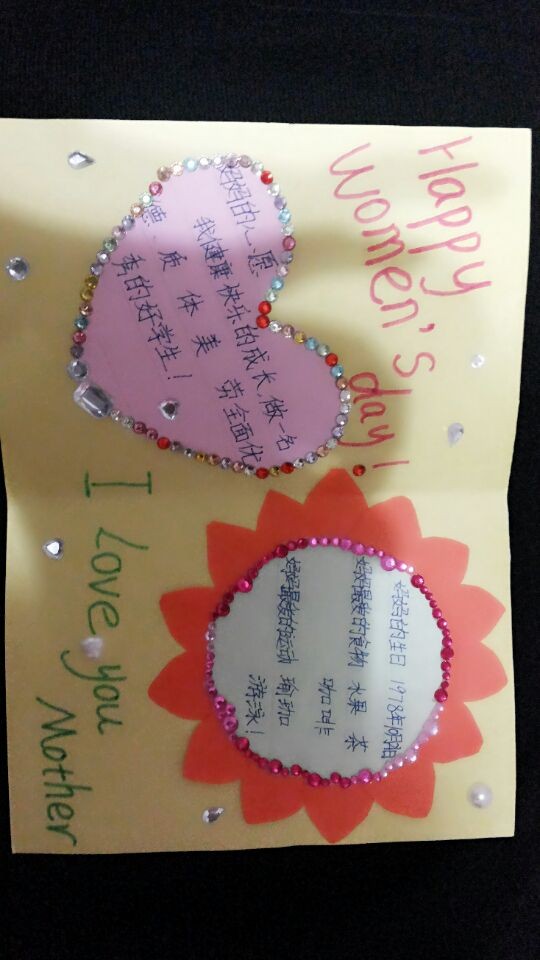 Happy
Women's
day!
妈妈的心愿
我健康快乐的成长,做一名
德、质 体 美 劳全面优
秀的好学生!
妈妈的生日 1978年
妈妈最爱的食物 水果 茶
咖啡
妈妈最爱的运动 瑜珈
游泳!
I Love you
Mother